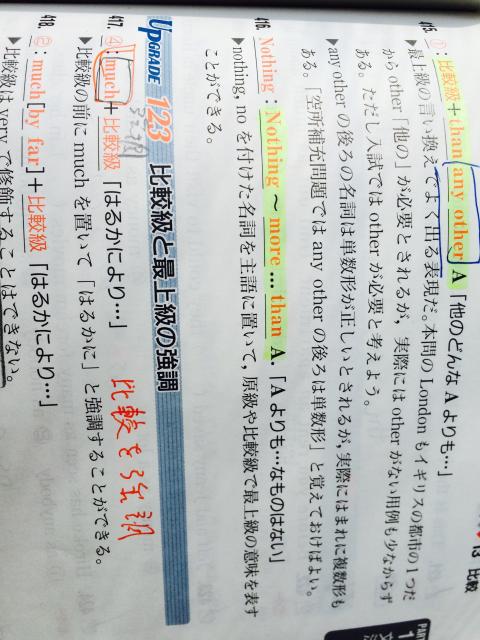 13 比較
PART 1
415. ①：比較級＋than any other A「他のどんなAよりも…」
▶最上級の言い換えでよく出る表現だ。本問のLondonもイギリスの都市の1つだ
からother「他の」が必要とされるが，実際にはotherがない用例も少なからず
ある。ただし入試ではotherが必要と考えよう。
▶any otherの後ろの名詞は単数形が正しいとされるが，実際にはまれに複数形も
ある。「空所補充問題ではany otherの後ろは単数形」と覚えておけばよい。
416. Nothing：Nothing ～ more … than A.「Aよりも…なものはない」
▶nothing, noを付けた名詞を主語に置いて，原級や比較級で最上級の意味を表す
ことができる。
UPGRADE 123 比較級と最上級の強調
417. ④：much＋比較級「はるかにより…」
比較を強調
▶比較級の前にmuchを置いて「はるかに」と強調することができる。
418. ②：much[by far]＋比較級「はるかにより…」
▶比較級はveryで修飾することはできない。